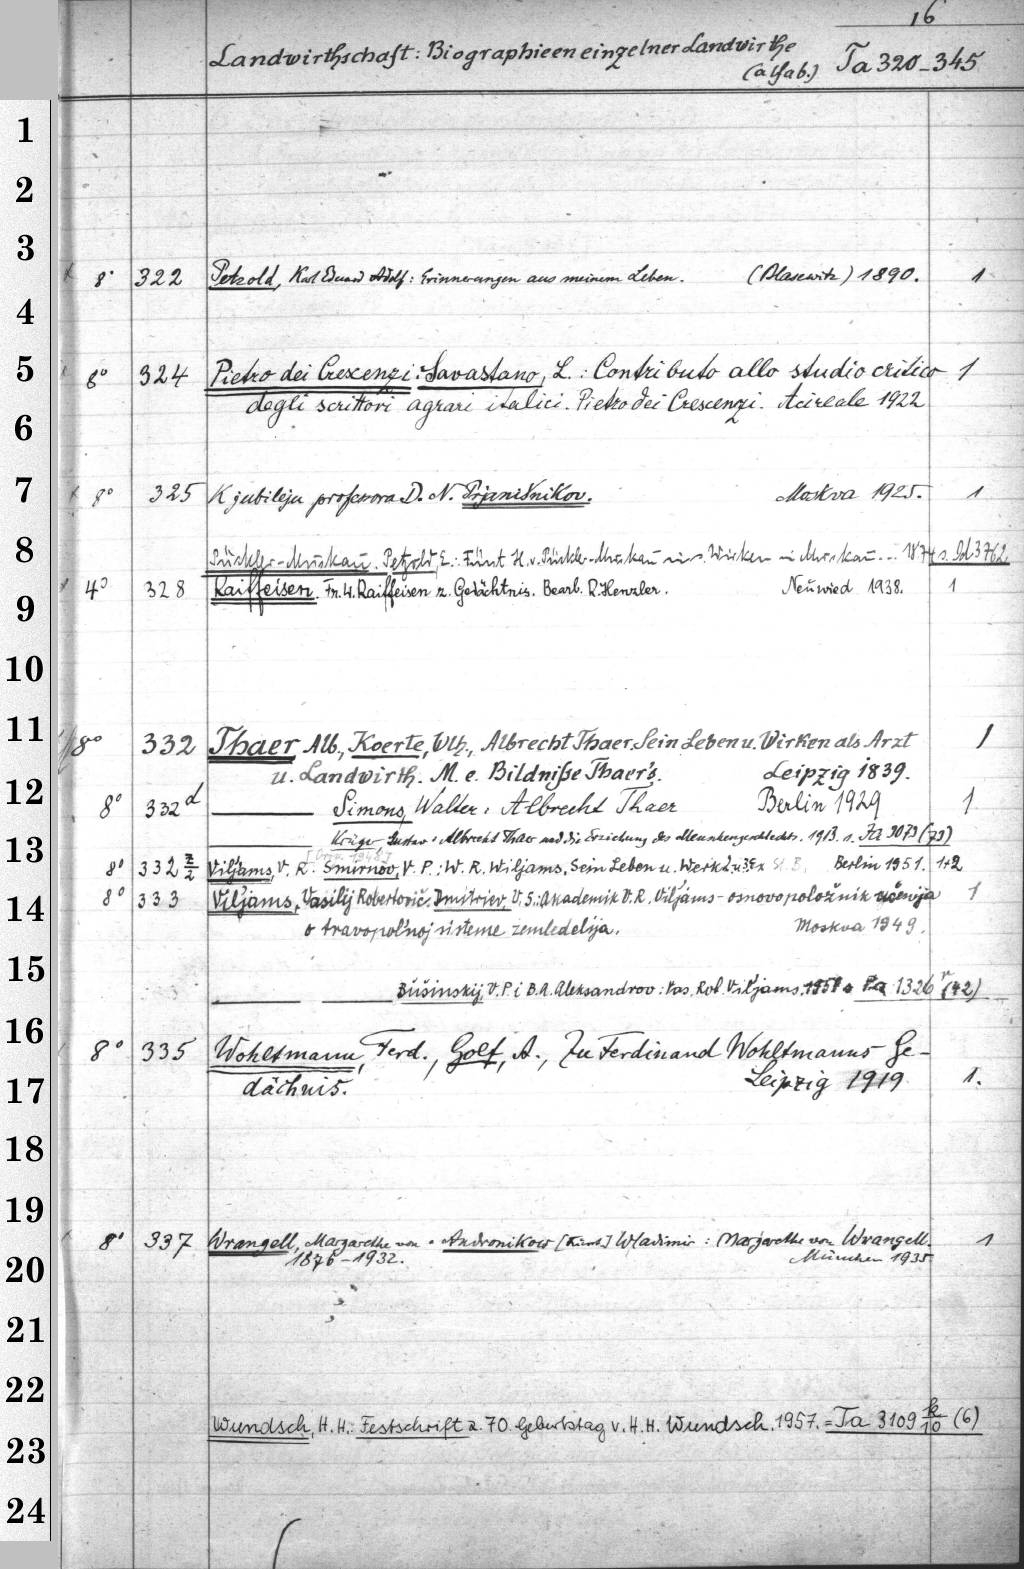 16
Landwirthschaft: Biographieen einzelner Landwirthe
(alfab.) Ta 320-345
1
2
3
8° 322 Petzold, Karl Eduard Adolf: Erinnerungen aus meinem Leben. (Blasewitz) 1890. 1
4
5
8° 324 Pietro dei Crescenzi: Savastano, L.: Contributo allo studio critico 1
degli scrittori agrari italici. Pietro dei Crescenzi. Acireale 1922
6
7
8° 325 K jubileju professora D. N. Prjanišnikov. Moskva 1925. 1
8
Pückler-Muskau. Petzold, E.: Fürst H. v. Pückler-Muskau in s. Wirken in Muskau... 1874 s.
4° 328 Raiffeisen. Fr. W. Raiffeisen z. Gedächtnis. Bearb. R. Henzler. Neuwied 1938. 1
9
10
11
8° 332 Thaer Alb., Koerte, Wlh., Albrecht Thaer. Sein Leben u. Wirken als Arzt 1
u. Landwirth. M. e. Bildnisse Thaer's. Leipzig 1839.
12
8° 332d Simons, Walter: Albrecht Thaer Berlin 1929 1
Krüger, Gustav: Albrecht Thaer und die Erziehung des Menschengeschlechts. 1913. s. Ja 9073 (79)
13
8° 332 z/2 Viljams, V. R. Smirnov, V. P.: W. R. Wiljams, Sein Leben u. Werk Berlin 1951. 1+2
8° 333 Vil'jams, Vasilij Robertovič. Dmitriev, V. S.: Akademik V. R. Vil'jams - osnovopoložnik učenija 1
14
o travopol'noj sisteme zemledelija. Moskva 1949.
15
Bušinskij, V. P. i B. A. Aleksandrov: Vas. Rob. Vil'jams. 1326 (42)
16
8° 335 Wohltmann, Ferd., Golf, A., Zu Ferdinand Wohltmanns Ge-
dächnis. Leipzig 1919 1.
17
18
19
8° 337 Wrangell, Margarethe von. Andronikow [Fürst] Wladimir: Margarethe von Wrangell. 1
1876-1932. München 1935
20
21
22
Wundsch, H. H.: Festschrift z. 70. Geburtstag v. H. H. Wundsch. 1957. = Ta 3109 k/10 (6)
23
24